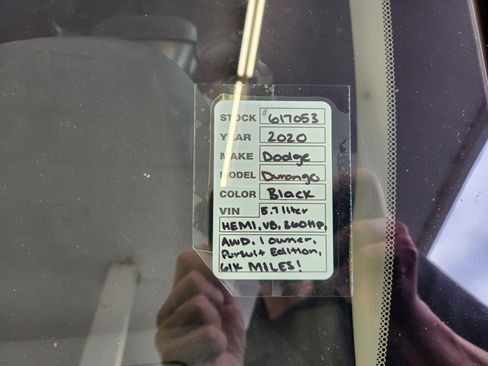 STOCK # 617053
YEAR 2020
MAKE Dodge
MODEL Durango
COLOR Black
VIN 5.7 liter
HEMI, V8, 360HP,
AWD, 1 owner,
Pursuit Edition,
61K MILES!